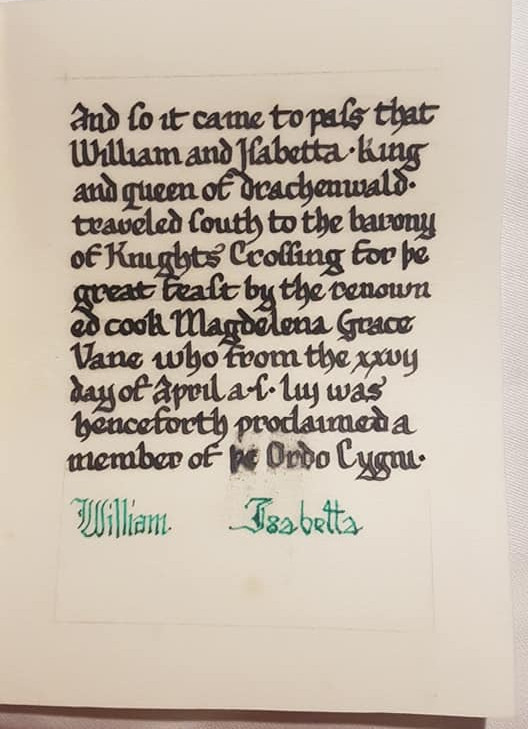 And ſo it came to paſs that
William and Iſabetta · King
and queen of drachenwald·
traveled ſouth to the barony
of Knights Croſſing for þe
great feaſt by the renown
ed cook Magdelena Grace
Vane who from the xxvij
day of april a·ſ· liij was
henceforth proclaimed a
member of þe Ordo Cygni·
William Isabetta